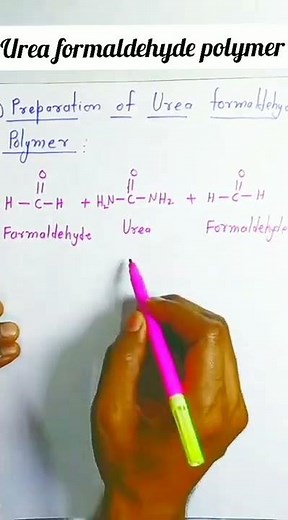 Urea formaldehyde polymer
Preparation of Urea formaldehy
Polymer :
O O O
|| || ||
H — C — H + H₂N — C — NH₂ + H — C — H
Formaldehyde Urea Formaldehyde